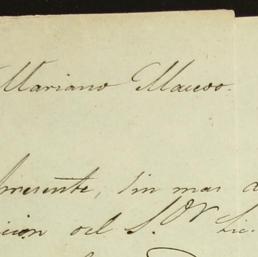 Mariano Macedo.
Presente, sin mas
cion del S.or Lic.